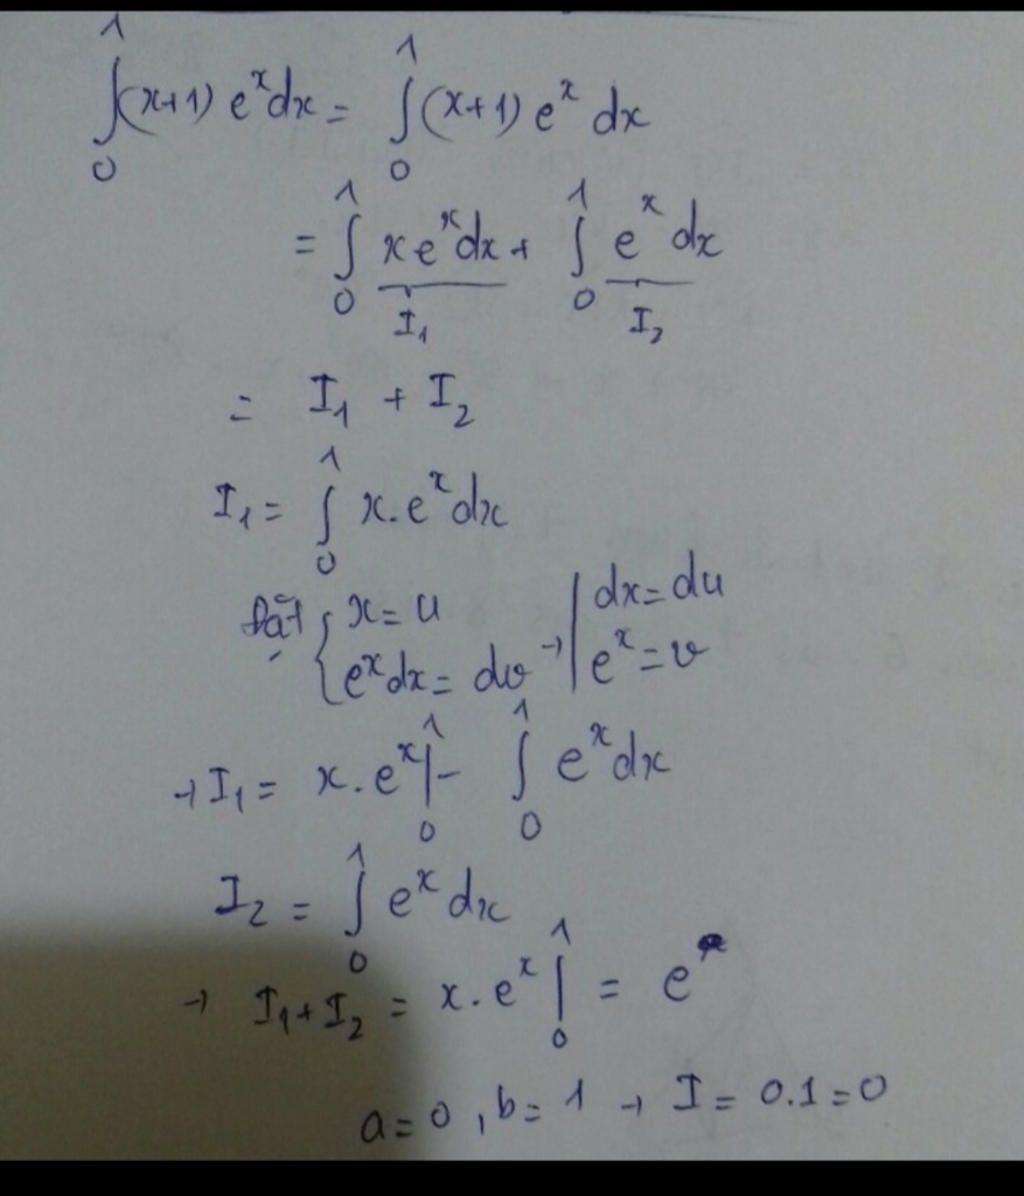 ∫₀¹ (x+1) eˣ dx = ∫₀¹ (x+1) eˣ dx
= ∫₀¹ x eˣ dx + ∫₀¹ eˣ dx
I₁ I₂
= I₁ + I₂
I₁ = ∫₀¹ x.eˣ dx
Đặt { x = u → | dx = du
eˣ dx = dv eˣ = v
→ I₁ = x.eˣ |₀¹ - ∫₀¹ eˣ dx
I₂ = ∫₀¹ eˣ dx
→ I₁ + I₂ = x.eˣ |₀¹ = e
a = 0, b = 1 → I = 0.1 = 0